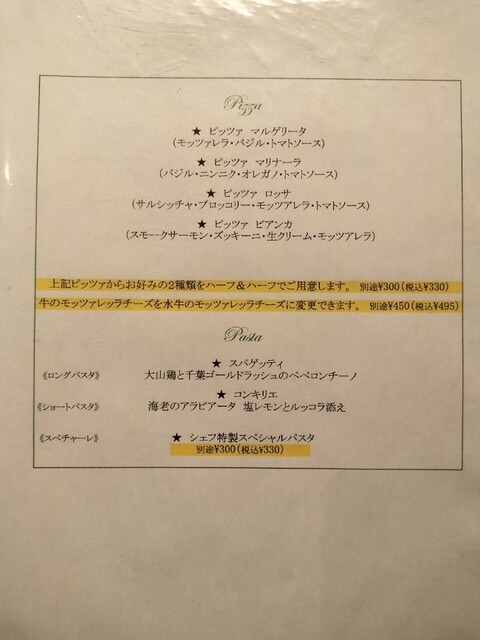 Pizza
★ ピッツァ マルゲリータ
(モッツァレラ・バジル・トマトソース)
★ ピッツァ マリナーラ
(バジル・ニンニク・オレガノ・トマトソース)
★ ピッツァ ロッサ
(サルシッチャ・ブロッコリー・モッツアレラ・トマトソース)
★ ピッツァ ビアンカ
(スモークサーモン・ズッキーニ・生クリーム・モッツアレラ)
上記ピッツァからお好みの2種類をハーフ&ハーフでご用意します。 別途¥300(税込¥330)
牛のモッツァレッラチーズを水牛のモッツァレッラチーズに変更できます。 別途¥450(税込¥495)
Pasta
★ スパゲッティ
《ロングパスタ》 大山鶏と千葉ゴールドラッシュのペペロンチーノ
★ コンキリエ
《ショートパスタ》 海老のアラビアータ 塩レモンとルッコラ添え
《スペチャーレ》 ★ シェフ特製スペシャルパスタ
別途¥300(税込¥330)